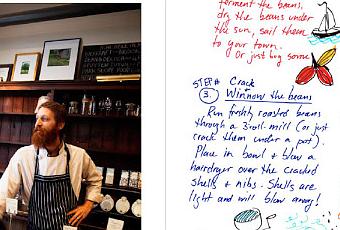 ferment the beans,
dry the beans under
the sun, sail them
to your town.
Or just buy some
STEP# Crack
3. Winnow the beans
Run freshly roasted beans
through a 3 roll-mill (or just
crack them under a pot).
Place in bowl + blow a
hairdryer over the cracked
shells + nibs. Shells are
light and will blow away!